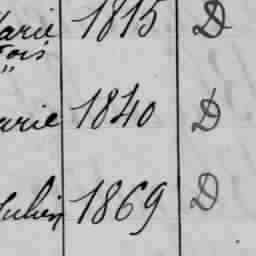 arie 1815 D
fois
"
arie 1840 D
Julien 1869 D